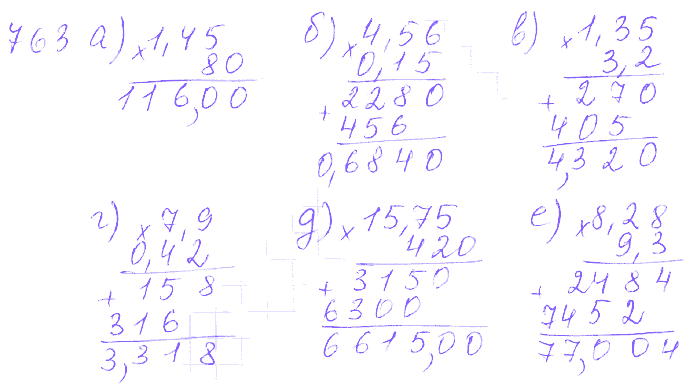 763 а) × 1,45
80
116,00
б) × 4,56
0,15
+ 2280
456
0,6840
в) × 1,35
3,2
+ 270
405
4,320
г) × 7,9
0,42
+ 158
316
3,318
д) × 15,75
420
+ 3150
6300
6615,00
е) × 8,28
9,3
+ 2484
7452
77,004